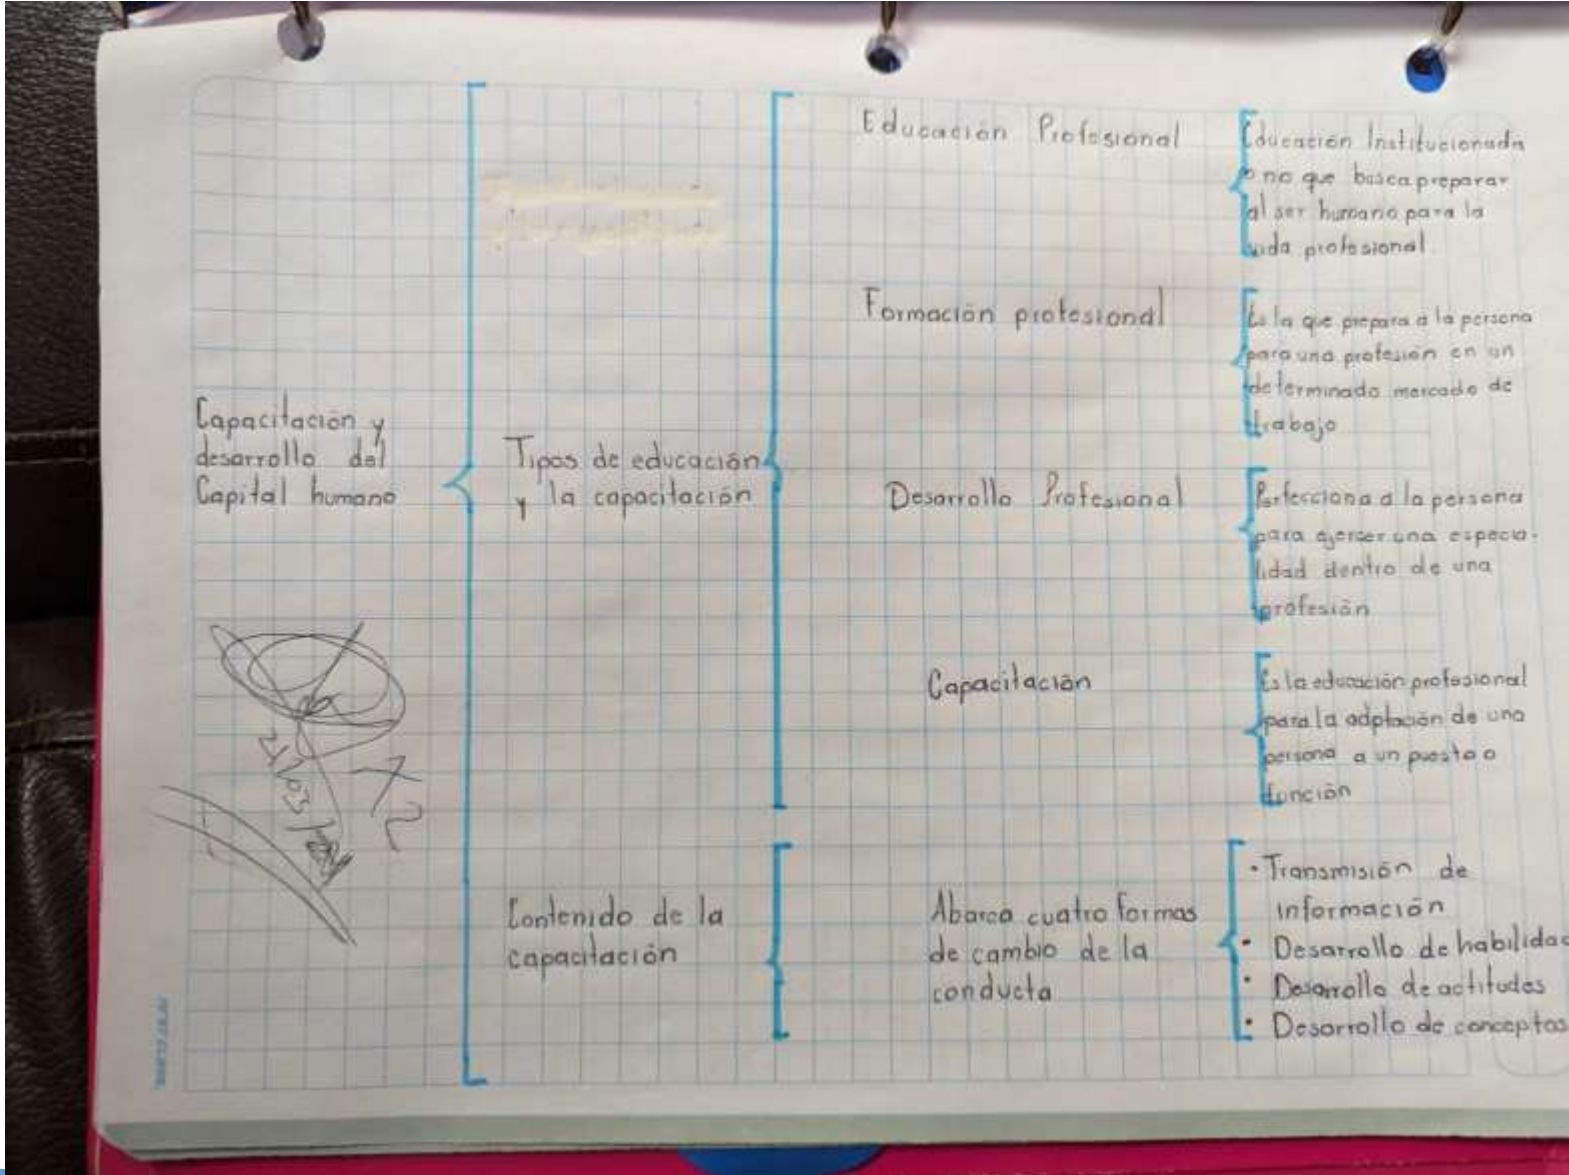 Capacitación y
desarrollo del
Capital humano
Tipos de educación
y la capacitación
Educación Profesional
Educación Institucionada
o no que busca preparar
al ser humano para la
vida profesional.
Formación profesional
Es la que prepara a la persona
para una profesión en un
determinado mercado de
trabajo
Desarrollo Profesional
Perfecciona a la persona
para ejercer una especia-
lidad dentro de una
profesión
Capacitación
Es la educación profesional
para la adptación de una
persona a un puesto o
función
Contenido de la
capacitación
Abarca cuatro formas
de cambio de la
conducta
• Transmisión de
información
• Desarrollo de habilidad
• Desarrollo de actitudes
• Desarrollo de conceptos